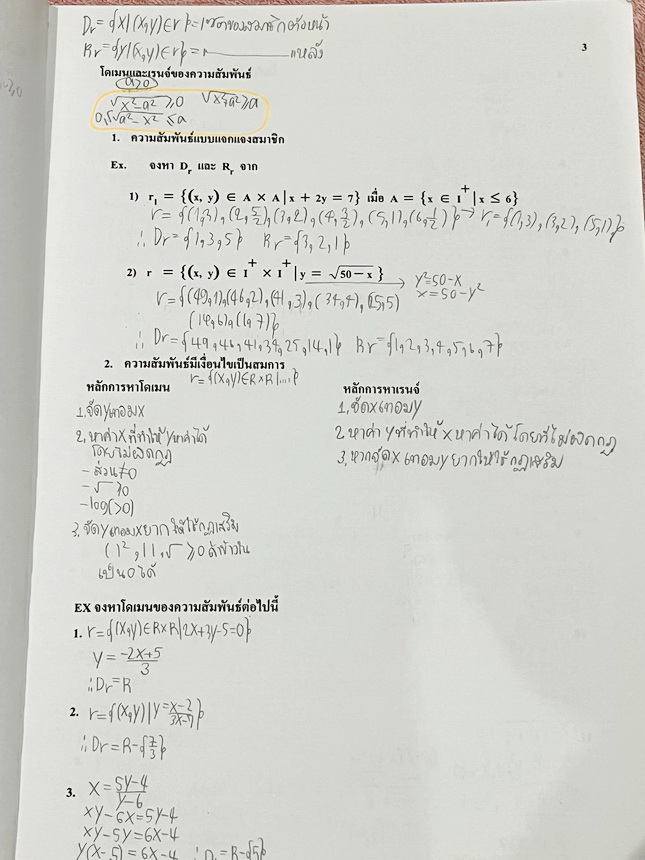 Dr = {x|(x,y)∈r} = เซตของสมาชิกตัวหน้า
Rr = {y|(x,y)∈r} = หลัง
3
โดเมนและเรนจ์ของความสัมพันธ์
a>0
√x²-a² ≥0 √x²+a² ≥a
0≤√a²-x² ≤a
1. ความสัมพันธ์แบบแจกแจงสมาชิก
Ex. จงหา Dr และ Rr จาก
1) r₁ = {(x, y) ∈ A × A|x + 2y = 7} เมื่อ A = {x ∈ I⁺|x ≤ 6}
r={(1,3),(2,5/2),(3,2),(4,3/2),(5,1),(6,1/2)} → r₁={(1,3),(3,2),(5,1)}
∴ Dr={1,3,5} Rr={3,2,1}
2) r = {(x, y) ∈ I⁺ × I⁺|y = √50-x} → y²=50-x
x=50-y²
r={(49,1),(46,2),(41,3),(34,4),(25,5)
(14,6),(1,7)}
∴ Dr={49,46,41,34,25,14,1} Rr={1,2,3,4,5,6,7}
2. ความสัมพันธ์มีเงื่อนไขเป็นสมการ
r={(x,y)∈R×R|....}
หลักการหาโดเมน
1.จัดyเทอมx
2.หาค่าxที่ทำให้yหาค่าได้
โดยไม่ผิดกฎ
-ส่วน≠0
-√ ≥0
-log(>0)
3.จัดyเทอมxยากให้ใช้กฎเสริม
( )²,| |,√ ≥0 ถ้าข้างใน
เป็น0ได้
หลักการหาเรนจ์
1.จัดxเทอมy
2.หาค่าyที่ทำให้xหาค่าได้โดยที่ไม่ผิดกฎ
3.หากจัดxเทอมyยากให้ใช้กฎเสริม
EX จงหาโดเมนของความสัมพันธ์ต่อไปนี้
1. r={(x,y)∈R×R|2x+3y-5=0}
y=-2x+5/3
∴Dr=R
2. r={(x,y)|y=x-2/3x-7}
∴Dr=R-{7/3}
3. x=5y-4/y-6
xy-6x=5y-4
xy-5y=6x-4
y(x-5)=6x-4 ∴Dr=R-{5}